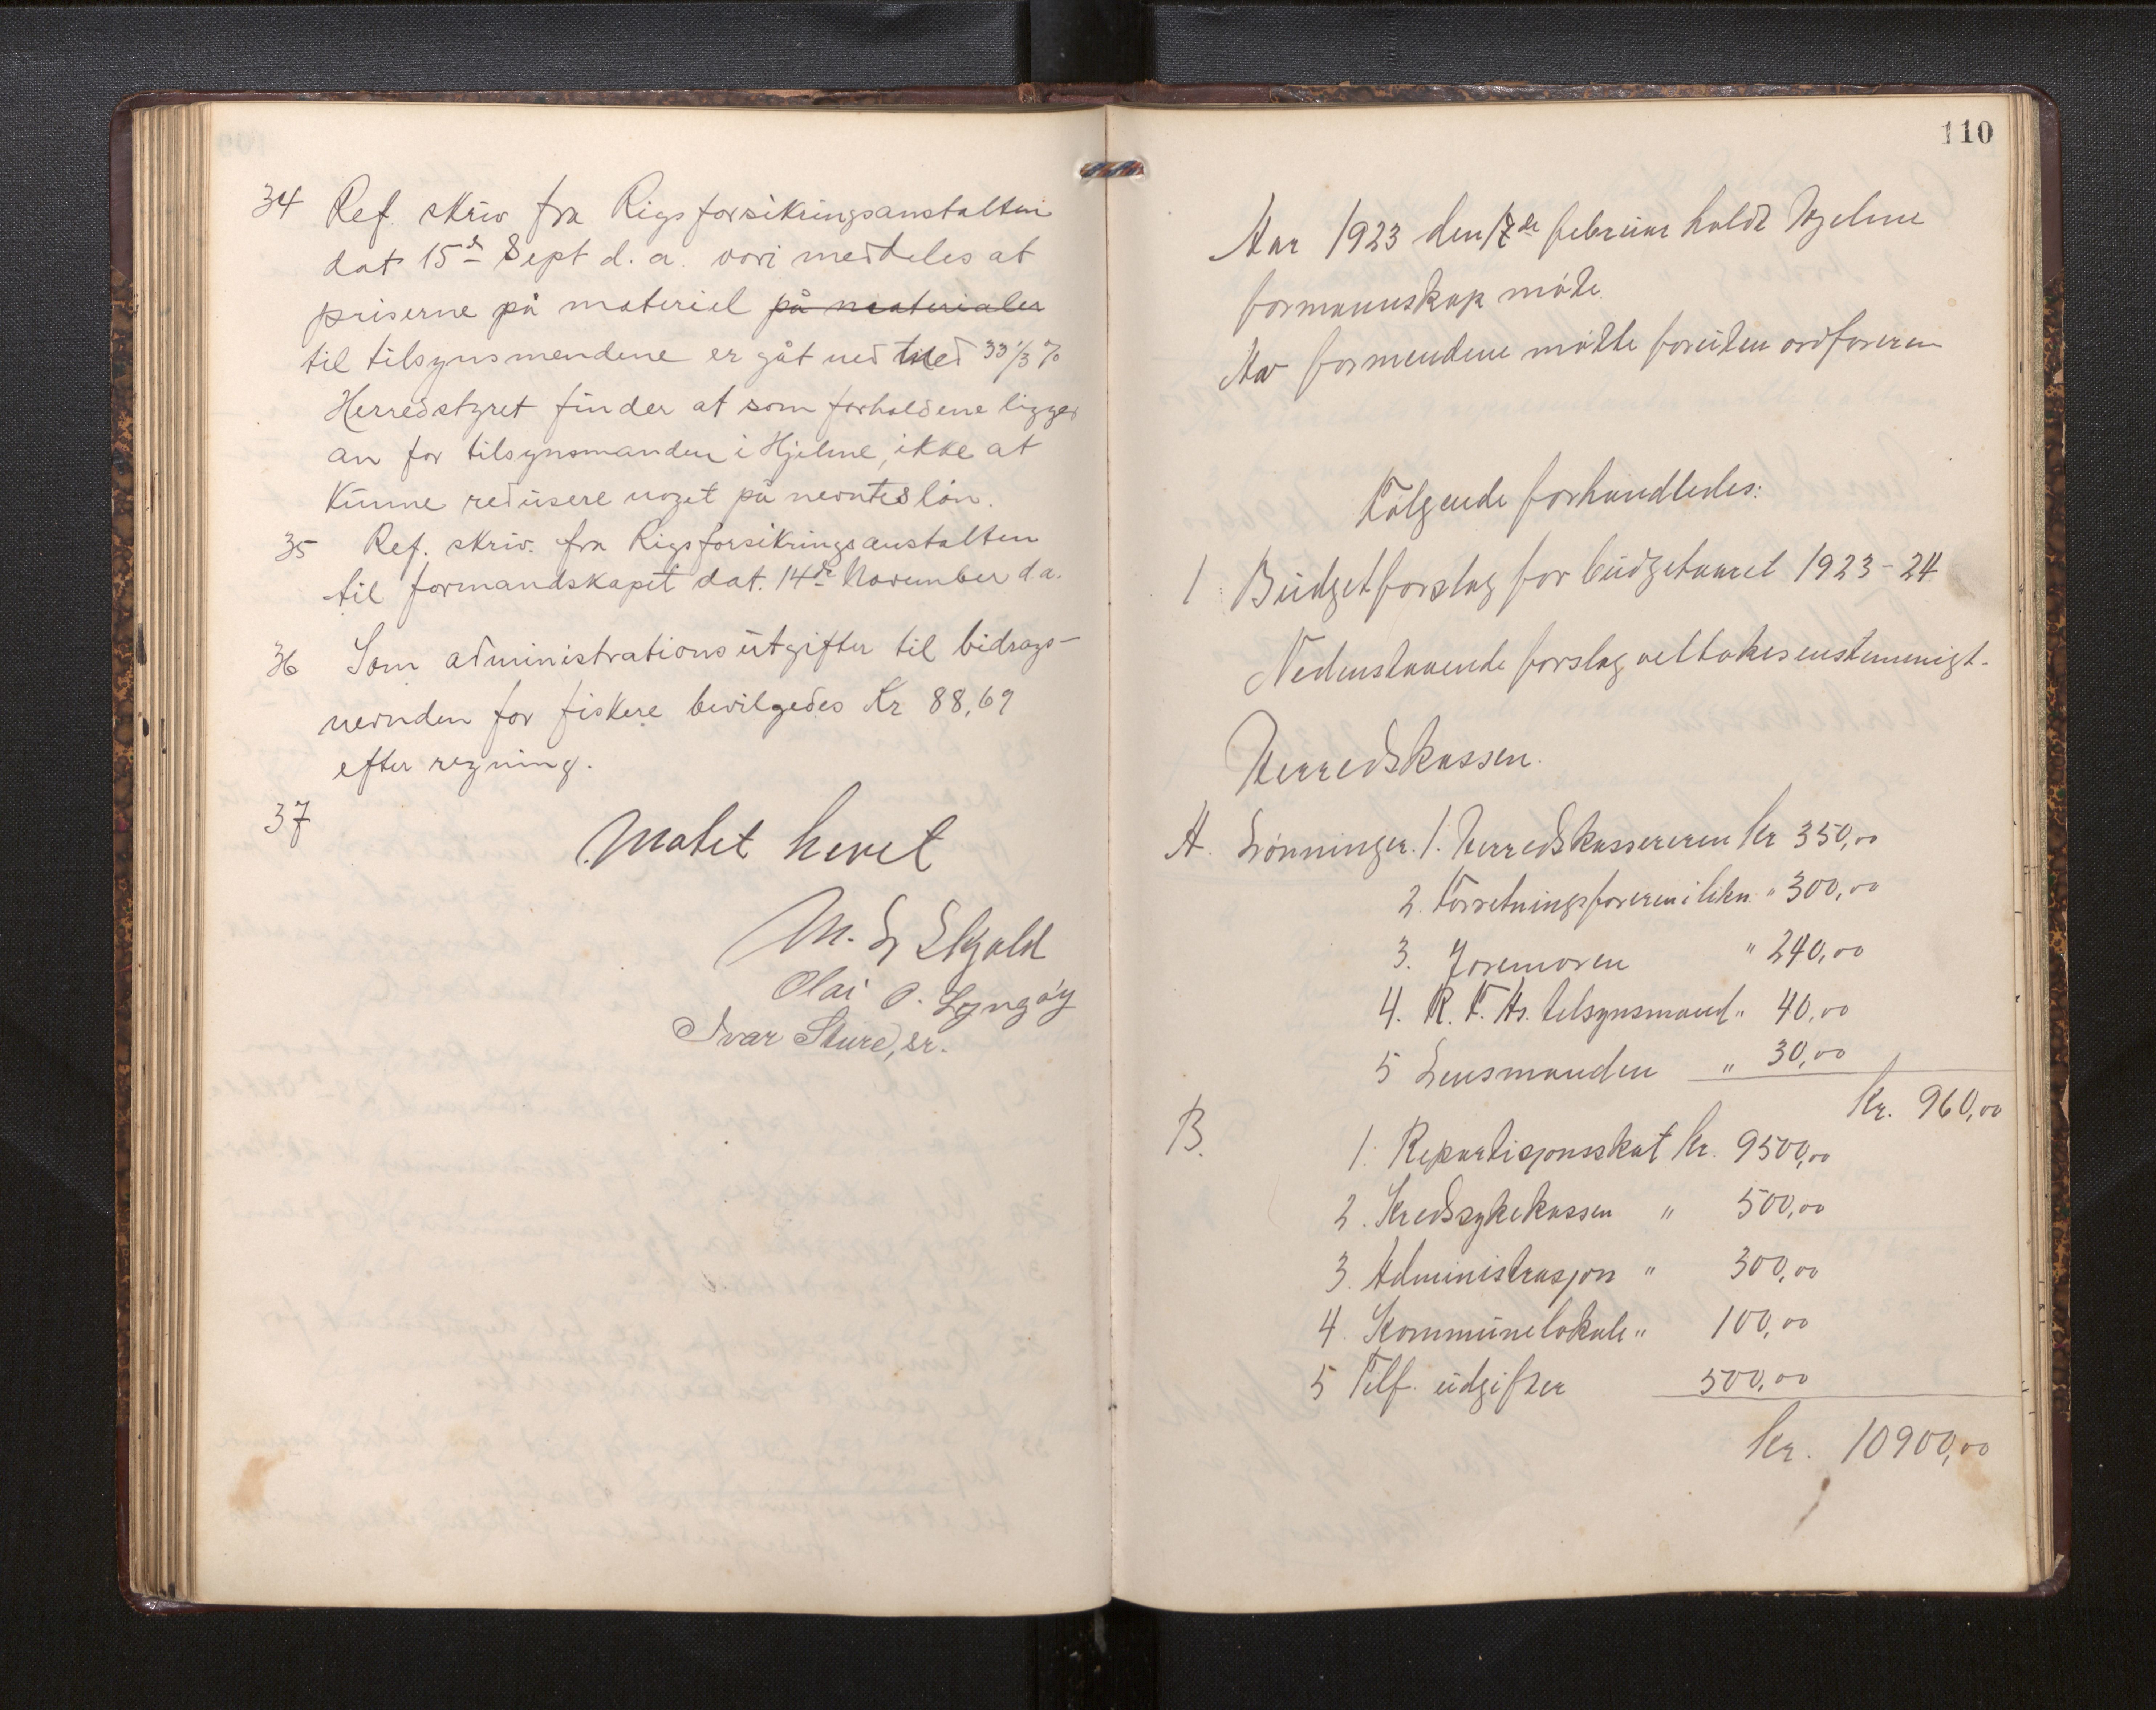 34 Ref. skriv fra Rigsforsikringsanstalten
dat 15de Sept d. a. vori meddeles at
priserne på materiel på materialer
til tilsynsmendene er gåt ned med 33 1/3 %
Herredstyret finder at som forholdene ligger
an for tilsynsmanden i Hjelme, ikke at
kunne redusere noget på nevntes løn.
35 Ref. skriv. fra Rigsforsikringsanstalten
til formandskapet dat. 14de November d.a.
36 Som administrationsutgifter til bidrags-
nevnden for fiskere bevilgedes Kr 88,69
efter regning.
37
Møtet hevet
M. S. Skjold
Olai O. Lyngøy
Ivar Sture, sr.
110
Aar 1923 den 17de februar holdt Hjelme
formannskap møte.
Av formendene møtte foruten ordføreren
Følgende forhandledes:
1. Budgetforslag for budgetaaret 1923-24
Nedenstaaende forslag vettokes enstemmigt.
Herredskassen.
A. Lønninger. 1. Herredskassereren kr 350,00
2. Forretningsføreren i likn. " 300,00
3. Joremoren " 240,00
4. R. F. As. tilsynsmand " 40,00
5 Lensmanden " 30,00
Kr. 960,00
B. 1. Repartisjonsskat kr. 9500,00
2. Kredssykekassen " 500,00
3. Administrasjon " 300,00
4. Kommunelokale " 100,00
5 Telf. udgifter 500,00
Kr. 10900,00